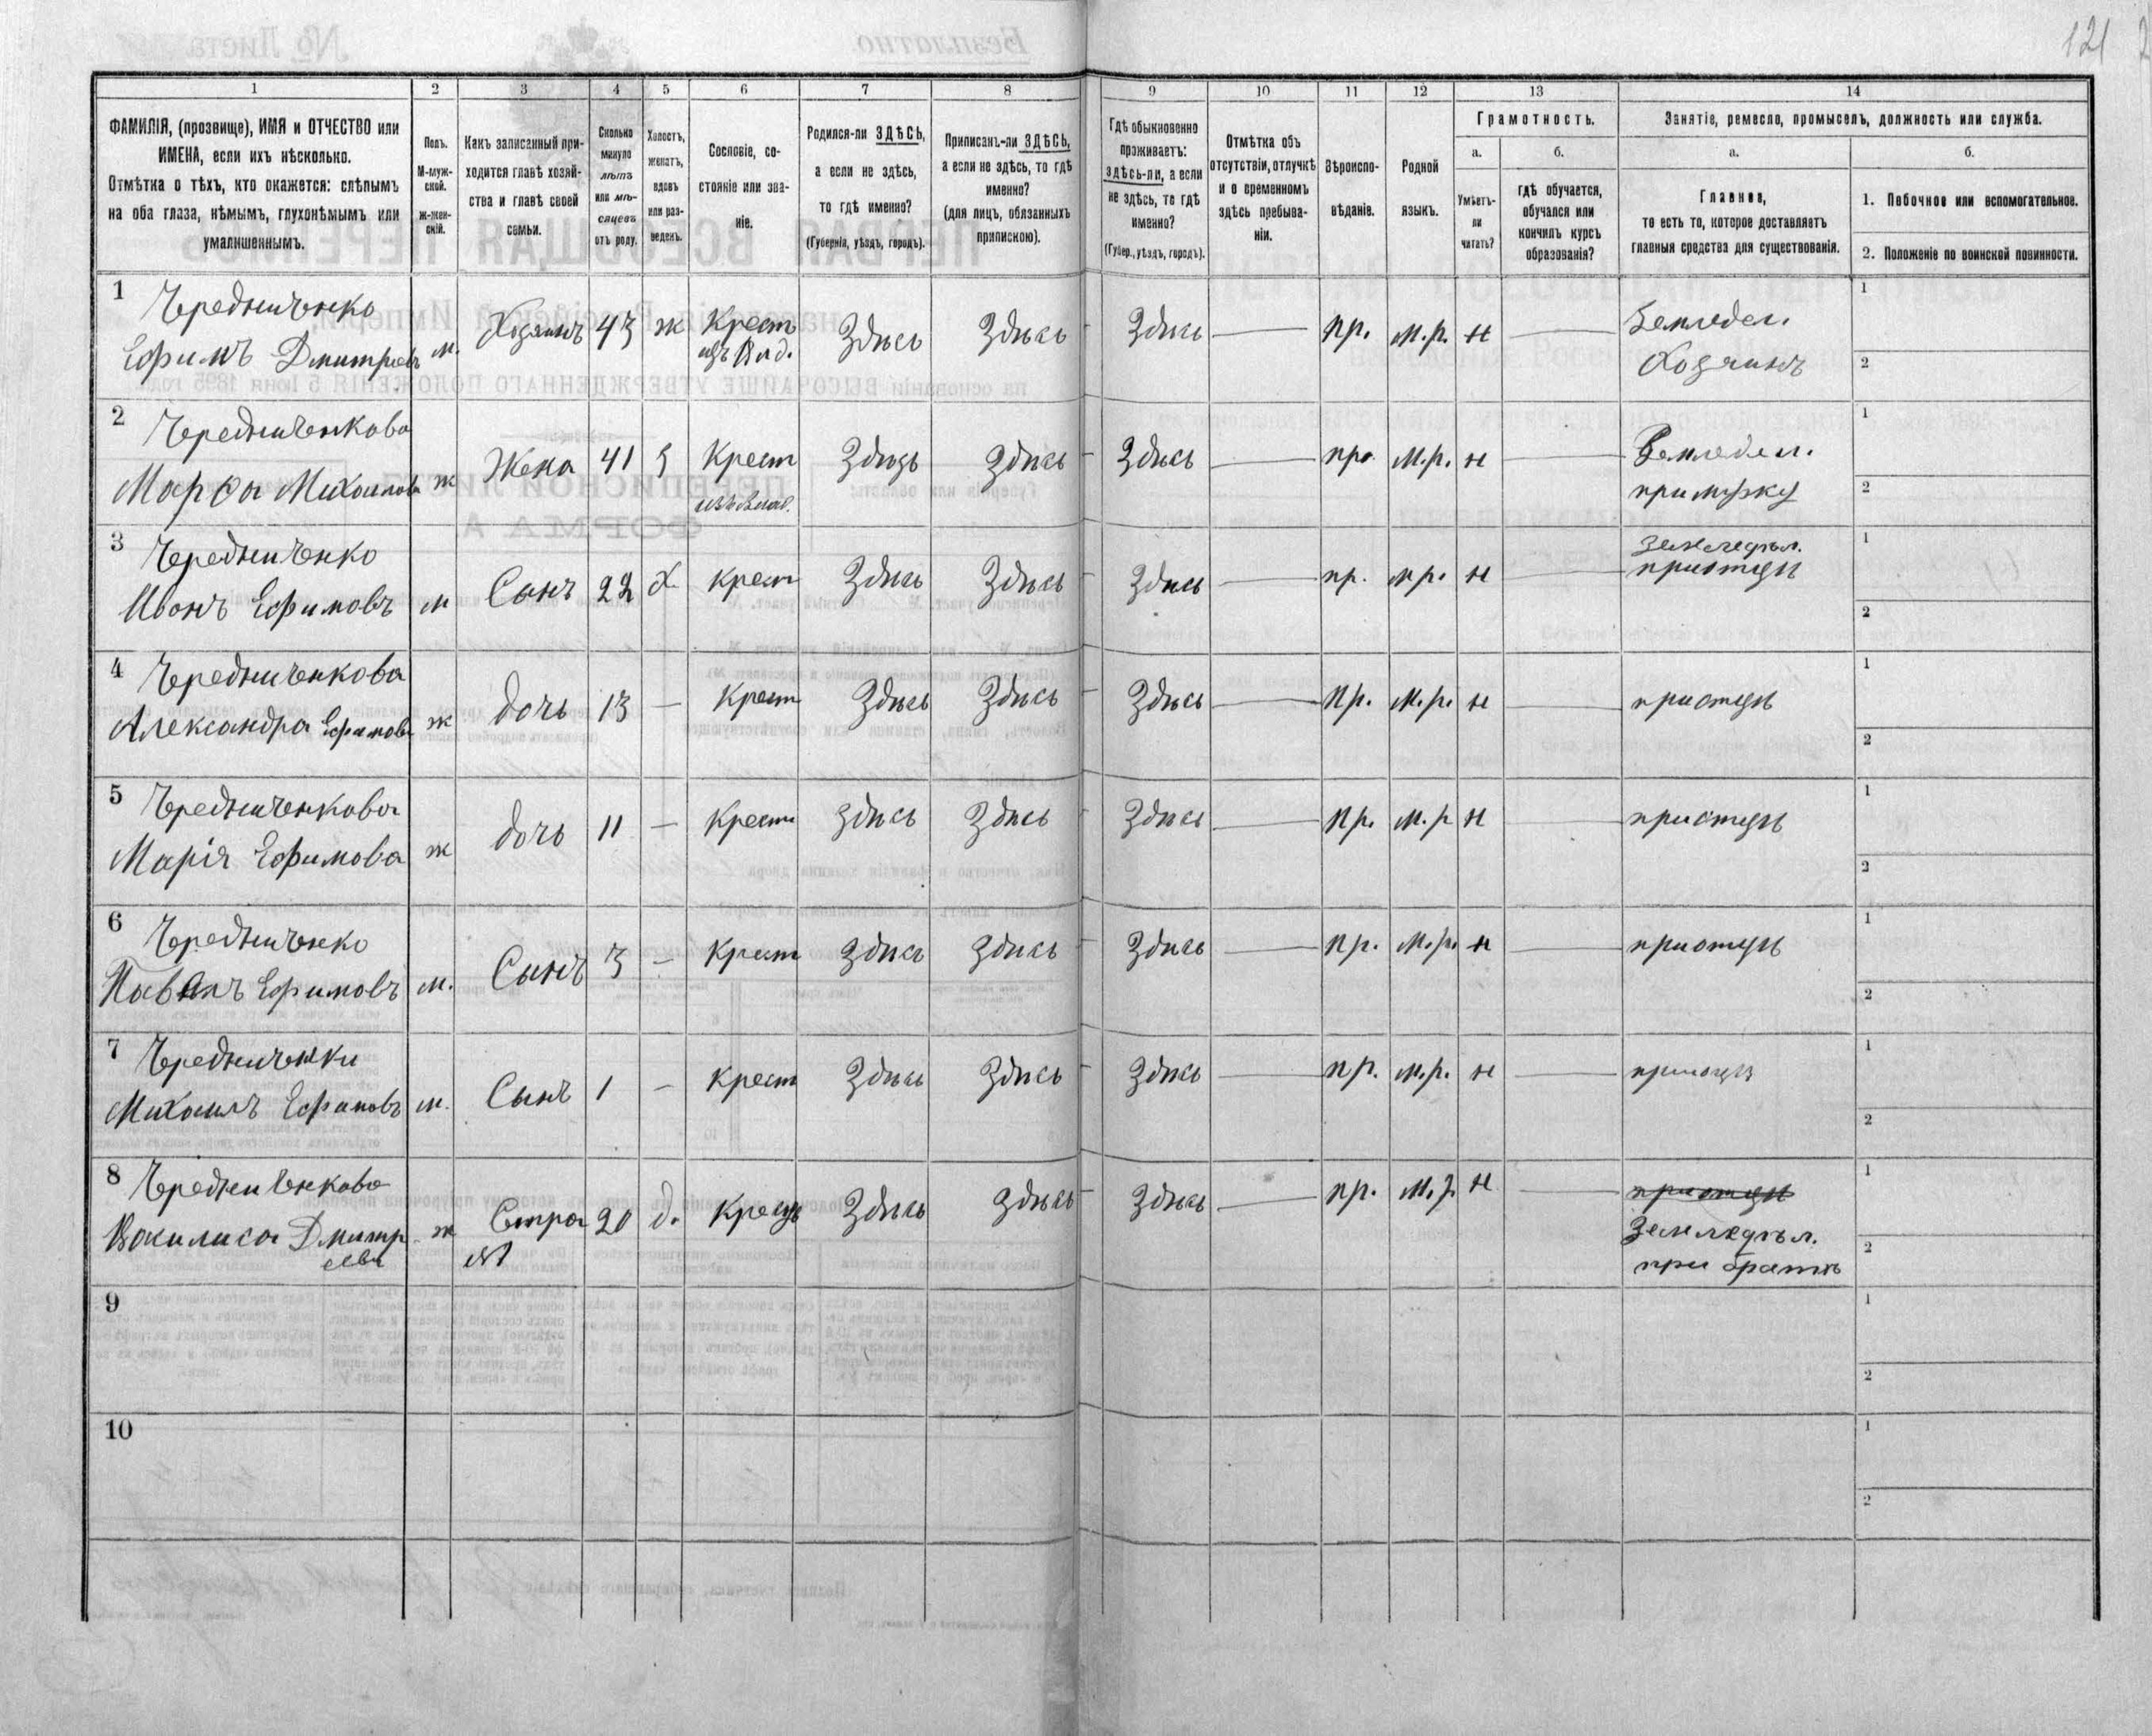 121
1 2 3 4 5 6 7 8 9 10 11 12 13 14
ФАМИЛІЯ, (прозвище), ИМЯ и ОТЧЕСТВО или
ИМЕНА, если ихъ нѣсколько.
Отмѣтка о тѣхъ, кто окажется: слѣпымъ
на оба глаза, нѣмымъ, глухонѣмымъ или
умалишеннымъ.
Полъ.
М-муж-
ской.
ж-жен-
скій.
Какъ записанный при-
ходится главѣ хозяй-
ства и главѣ своей
семьи.
Сколько
минуло
лѣтъ
или мѣ-
сяцевъ
отъ роду.
Холостъ,
женатъ,
вдовъ
или раз-
веденъ.
Сословіе, со-
стояніе или зва-
ніе.
Родился-ли ЗДѢСЬ,
а если не здѣсь,
то гдѣ именно?
(Губернія, уѣздъ, городъ).
Приписанъ-ли ЗДѢСЬ,
а если не здѣсь, то гдѣ
именно?
(для лицъ, обязанныхъ
припискою).
Гдѣ обыкновенно
проживаетъ:
здѣсь-ли, а если
не здѣсь, то гдѣ
именно?
(Губер., уѣздъ, городъ).
Отмѣтка объ
отсутствіи, отлучкѣ
и о временномъ
здѣсь пребыва-
ніи.
Вѣроиспо-
вѣданіе.
Родной
языкъ.
Грамотность.
а.
Умѣетъ-
ли
читать?
б.
гдѣ обучается,
обучался или
кончилъ курсъ
образованія?
Занятіе, ремесло, промыселъ, должность или служба.
а.
Главное,
то есть то, которое доставляетъ
главныя средства для существованія.
б.
1. Побочное или вспомогательное.
2. Положеніе по воинской повинности.
1 Чередниченко
Ефимъ Дмитріевъ м. Хозяинъ 43 ж Крест Здѣсь Здѣсь Здѣсь — пр. м.р. н — Земледел.
Хозяинъ
1
2
2 Чередниченкова
Марфа Михаилова ж Жена 41 З Крест Здѣсь Здѣсь Здѣсь — пр. м.р. н — Земледел.
при мужу
1
2
3 Чередниченко
Иванъ Ефимовъ м Сынъ 22 х крест Здѣсь Здѣсь Здѣсь — пр. м р. н — земледѣл.
при отцѣ
1
2
4 Чередниченкова
Александра Ефимова ж дочь 13 — Крест Здѣсь Здѣсь Здѣсь — Пр. м.р. н — при отцѣ
1
2
5 Чередниченкова
Марія Ефимова ж дочь 11 — Крест здѣсь Здѣсь Здѣсь — Пр. м.р н — при отцѣ
1
2
6 Чередниченко
Ефимовъ м. Сынъ 3 — Крест Здѣсь Здѣсь Здѣсь — Пр. М.р. н — при отцѣ
1
2
7 Чередниченки
Михаилъ Ефимовъ м. Сынъ 1 — крест Здѣсь Здѣсь Здѣсь — пр. м.р. н — при отцѣ
1
2
8 Чередниченкова
Вакилиса Дмитр
ева ж Сестра 20 д. Крест Здѣсь здѣсь Здѣсь — пр. м.р. н — при отцѣ
№1
Земледѣл.
при братѣ
1
2
9
1
2
10
1
2